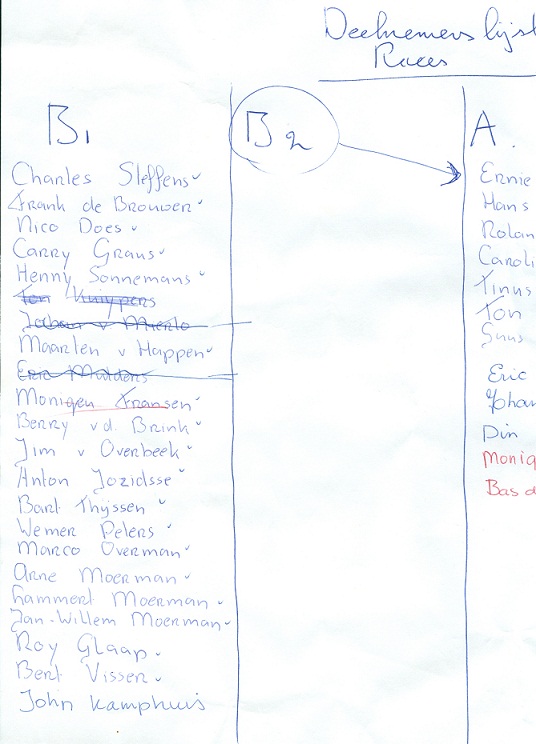 Deelnemers lijst
Races
B1
Charles Steffens
Frank de Brouwer
Nico Does
Carry Graus
Henny Sonnemans
Ton Kuijpers
v Mierlo
Maarten v Happen
Mulders
Moniqen Fransen
Berry vd. Brink
Jim v Overbeek
Anton Jozidsse
Bart Thijssen
Werner Peters
Marco Overman
Arne Moerman
Lammert Moerman
Jan-Willem Moerman
Roy Glaap
Bert Visser
John Kamphuis
B2
A.
Ernie
Hans
Rolan
Caroli
Tinus
Ton
Suus
Eric
Johan
Din
Moniq
Bas d